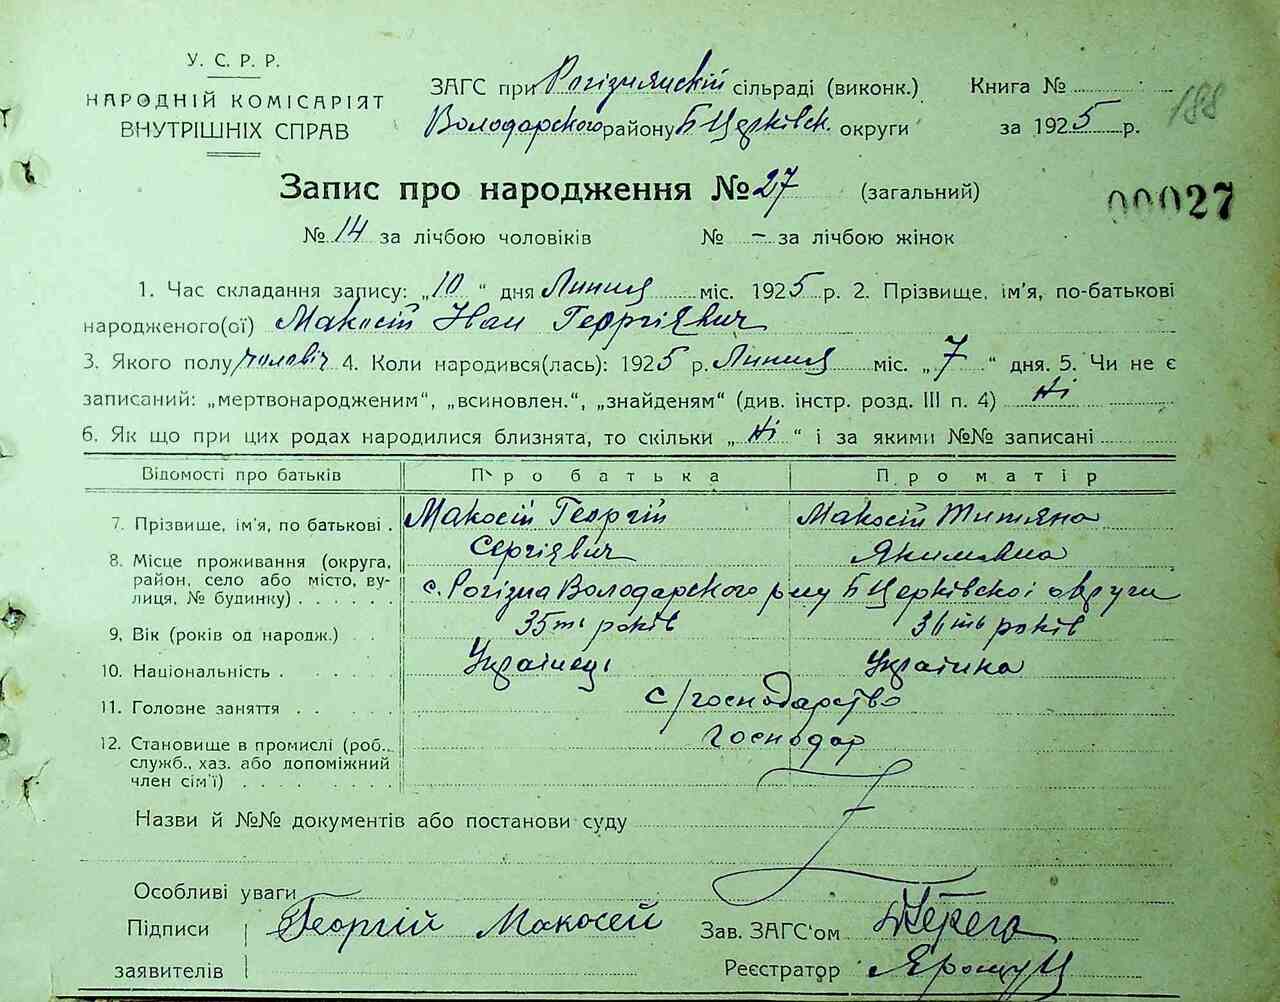 У. С. Р. Р.
НАРОДНІЙ КОМІСАРІЯТ
ВНУТРІШНІХ СПРАВ
ЗАГС при Рогізнянскій сільраді (виконк.)
Володарского району Б Церківск. округи
Книга №
за 1925 р.
188
Запис про народження № 27 (загальний)
00027
№ 14 за лічбою чоловіків № – за лічбою жінок
1. Час складання запису: „10“ дня Липня міс. 1925 р. 2. Прізвище, ім'я, по-батькові
народженого(ої) Макосій Іван Георгіевич
3. Якого полу чоловіч 4. Коли народився(лась): 1925 р. Липня міс. „7“ дня. 5. Чи не є
записаний: „мертвонародженим“, „всиновлен.“, „знайденям“ (див. інстр. розд. III п. 4) Ні
6. Як що при цих родах народилися близнята, то скільки „Ні“ і за якими №№ записані
Відомості про батьків Про батька Про матір
7. Прізвище, ім'я, по батькові . Макосій Георгій Макосій Титяна
Сергіевич Якимовна
8. Місце проживання (округа,
район, село або місто, ву-
лиця, № будинку) . . . . . с. Рогізна Володарского р-ну Б Церківскоі округи
9. Вік (років од народж.) . 35ть років 36ть років
10. Національність . . . . . Украінець Украінка
11. Головне заняття . . . . с/господарство
12. Становище в промислі (роб.,
служб., хаз. або допоміжний
член сім'ї) . . . . . . . . Господар
Назви й №№ документів або постанови суду
Особливі уваги
Підписи Георгій Макосей Зав. ЗАГС'ом
заявителів Реєстратор